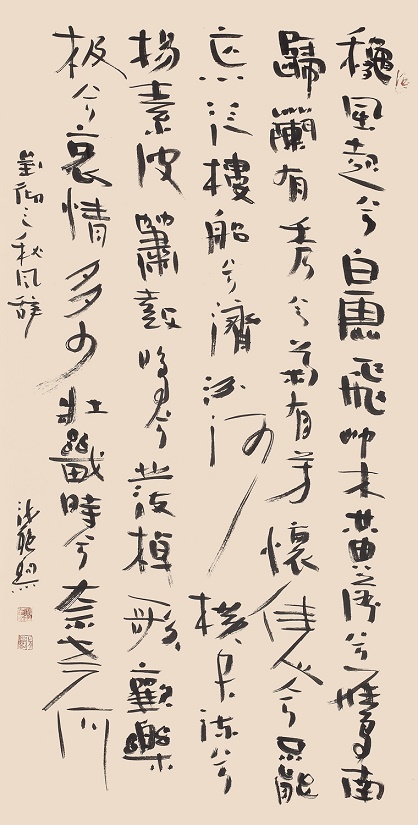 龝風起兮白雲飛艸木黄落兮雁南
歸蘭有秀兮菊有芳懷佳人兮不能
忘泛樓船兮濟汾河橫中流兮
揚素波簫鼓鳴兮發棹歌歡樂
极兮哀情多少壯幾時兮奈老何
劉徹之秋风辞